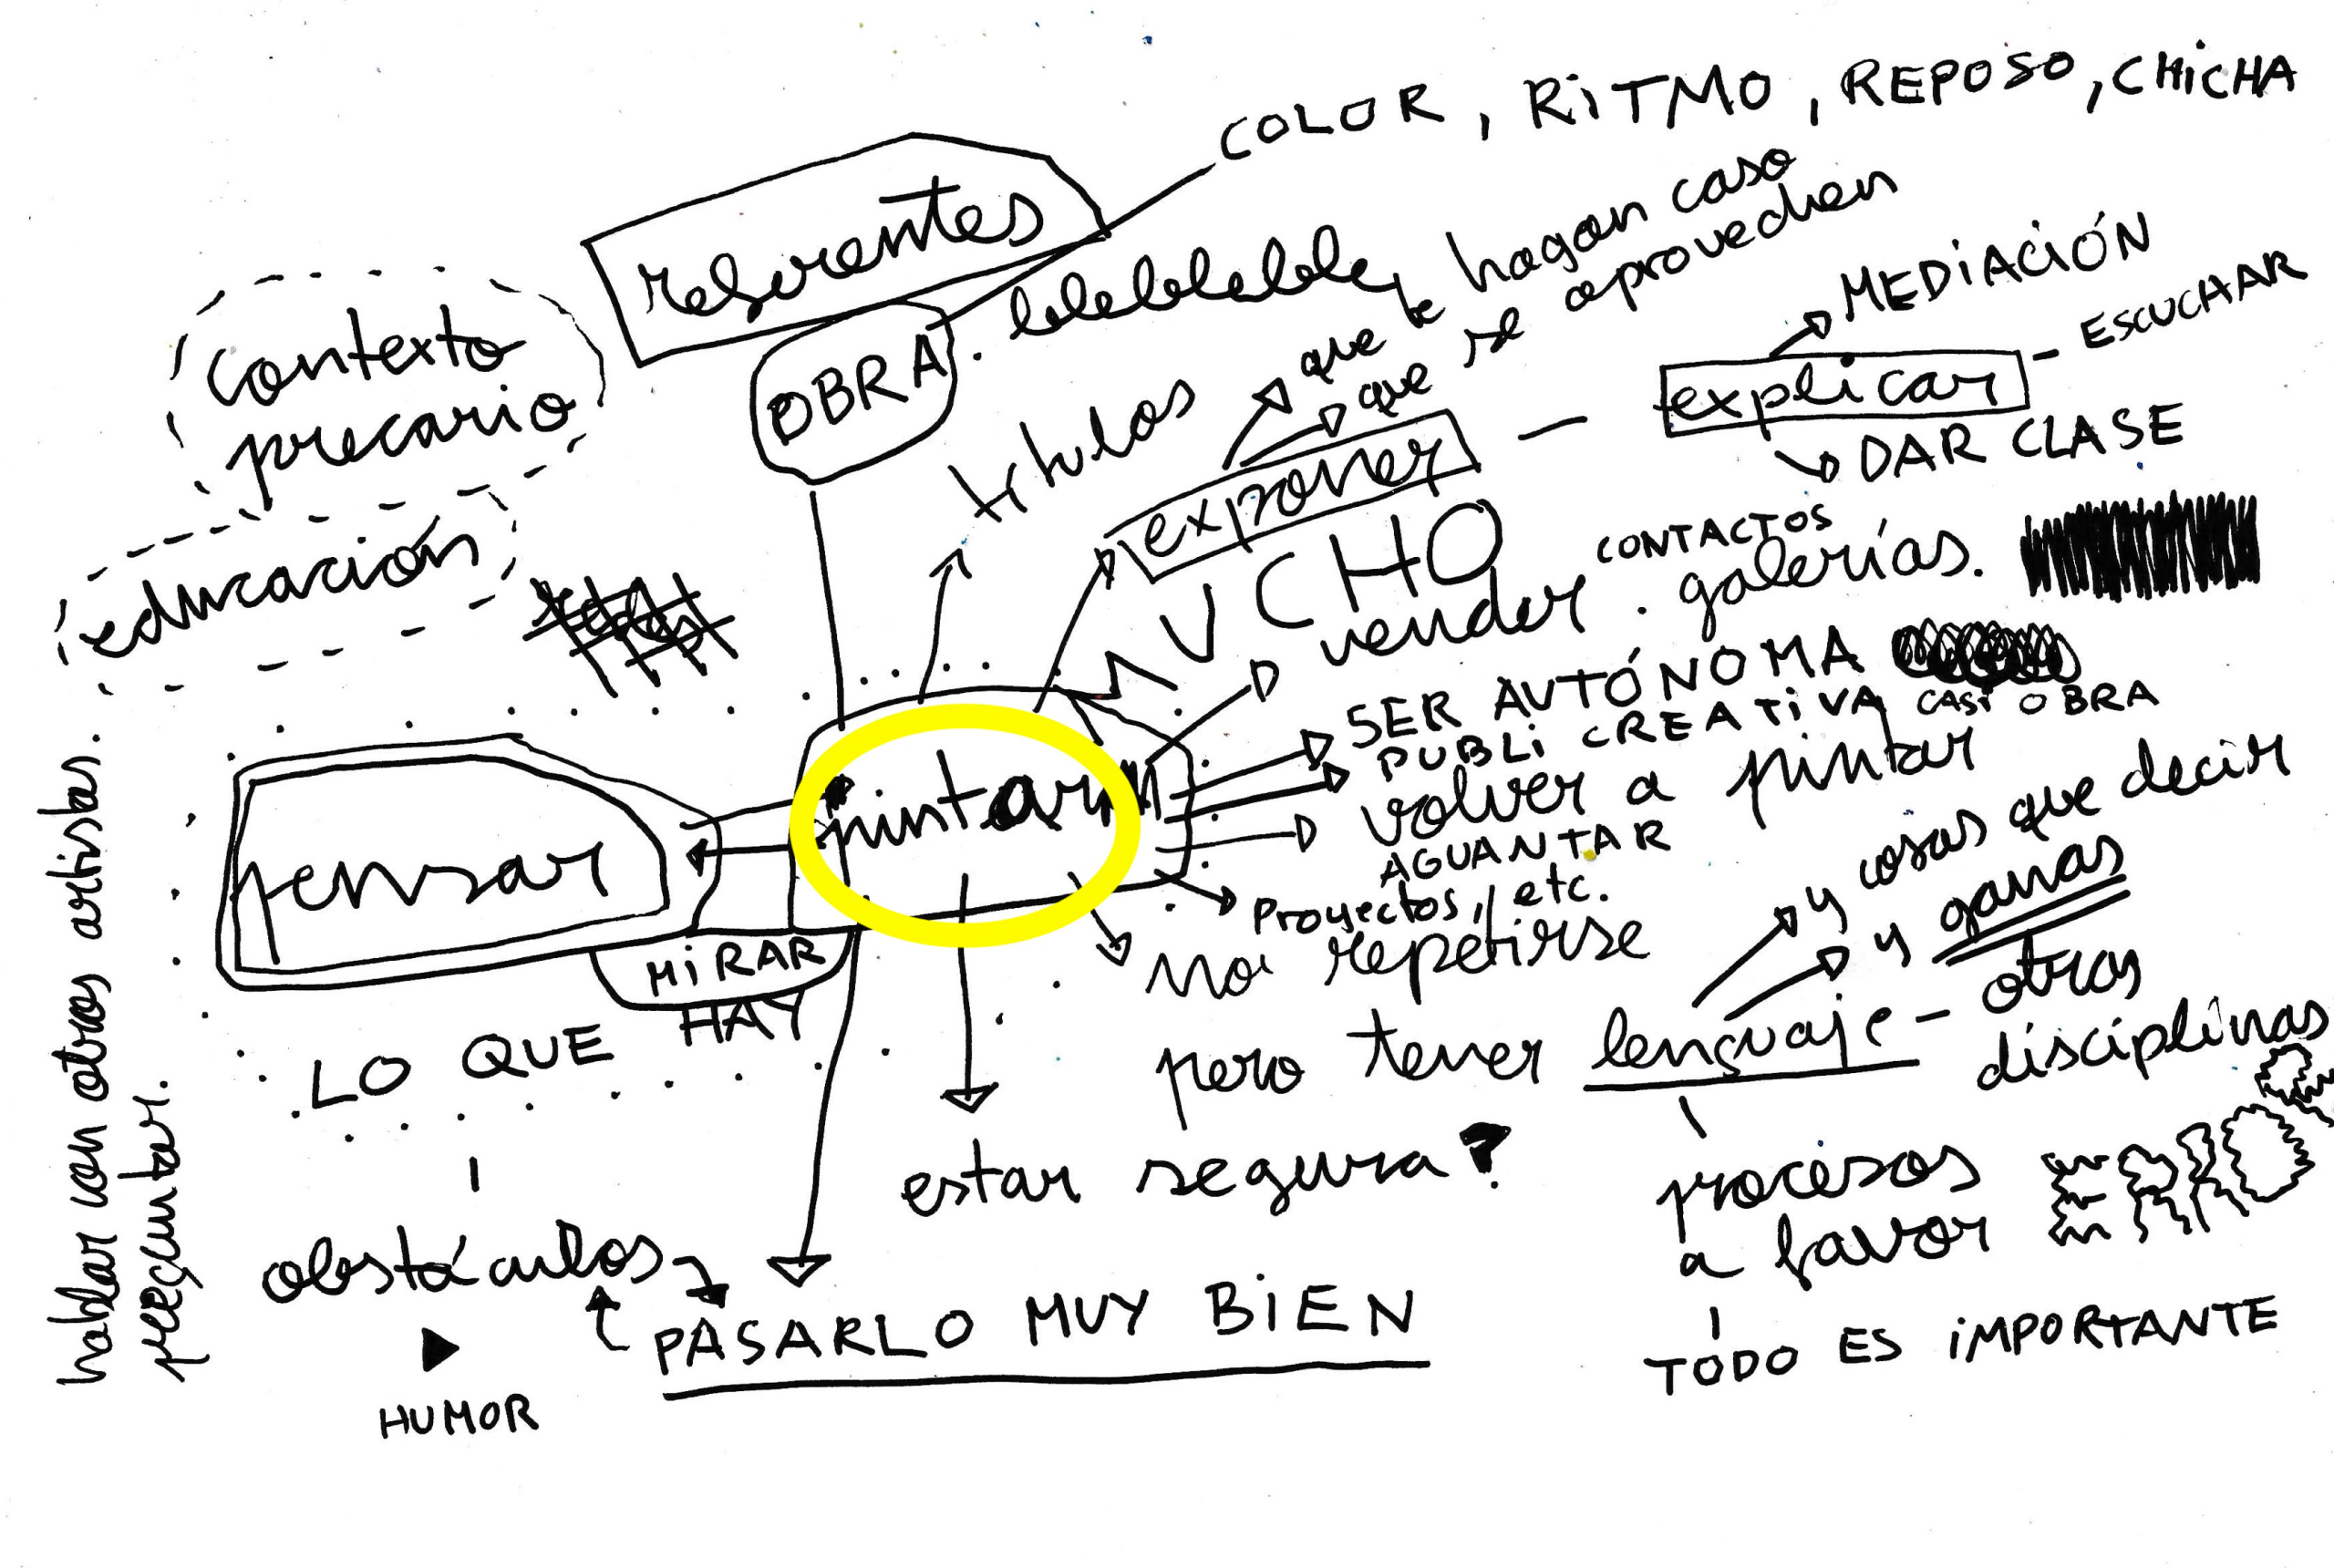 COLOR, RiTMO, REPOSO, CHiCHA
referentes
OBRA. blebleblebleble
títulos
que te hagan caso
que se aprovechen
exponer
explicar
MEDiACiÓN
ESCUCHAR
DAR CLASE
contexto
precario
educación
pensar
pintar
MiRAR
LO QUE HAY
obstáculos
HUMOR
PASARLO MUY BiEN
estar segura?
VCHO
vender. CONTACTOS
galerías.
SER AUTÓNOMA
PUBLi CREATiVA, CASi OBRA
volver a pintar
AGUANTAR
PROyectos, etc.
no repetirse
pero tener lenguaje - otras
disciplinas
y cosas que decir
y ganas
procesos
a favor
TODO ES iMPORTANTE
hablar con otros artistas.
preguntar.